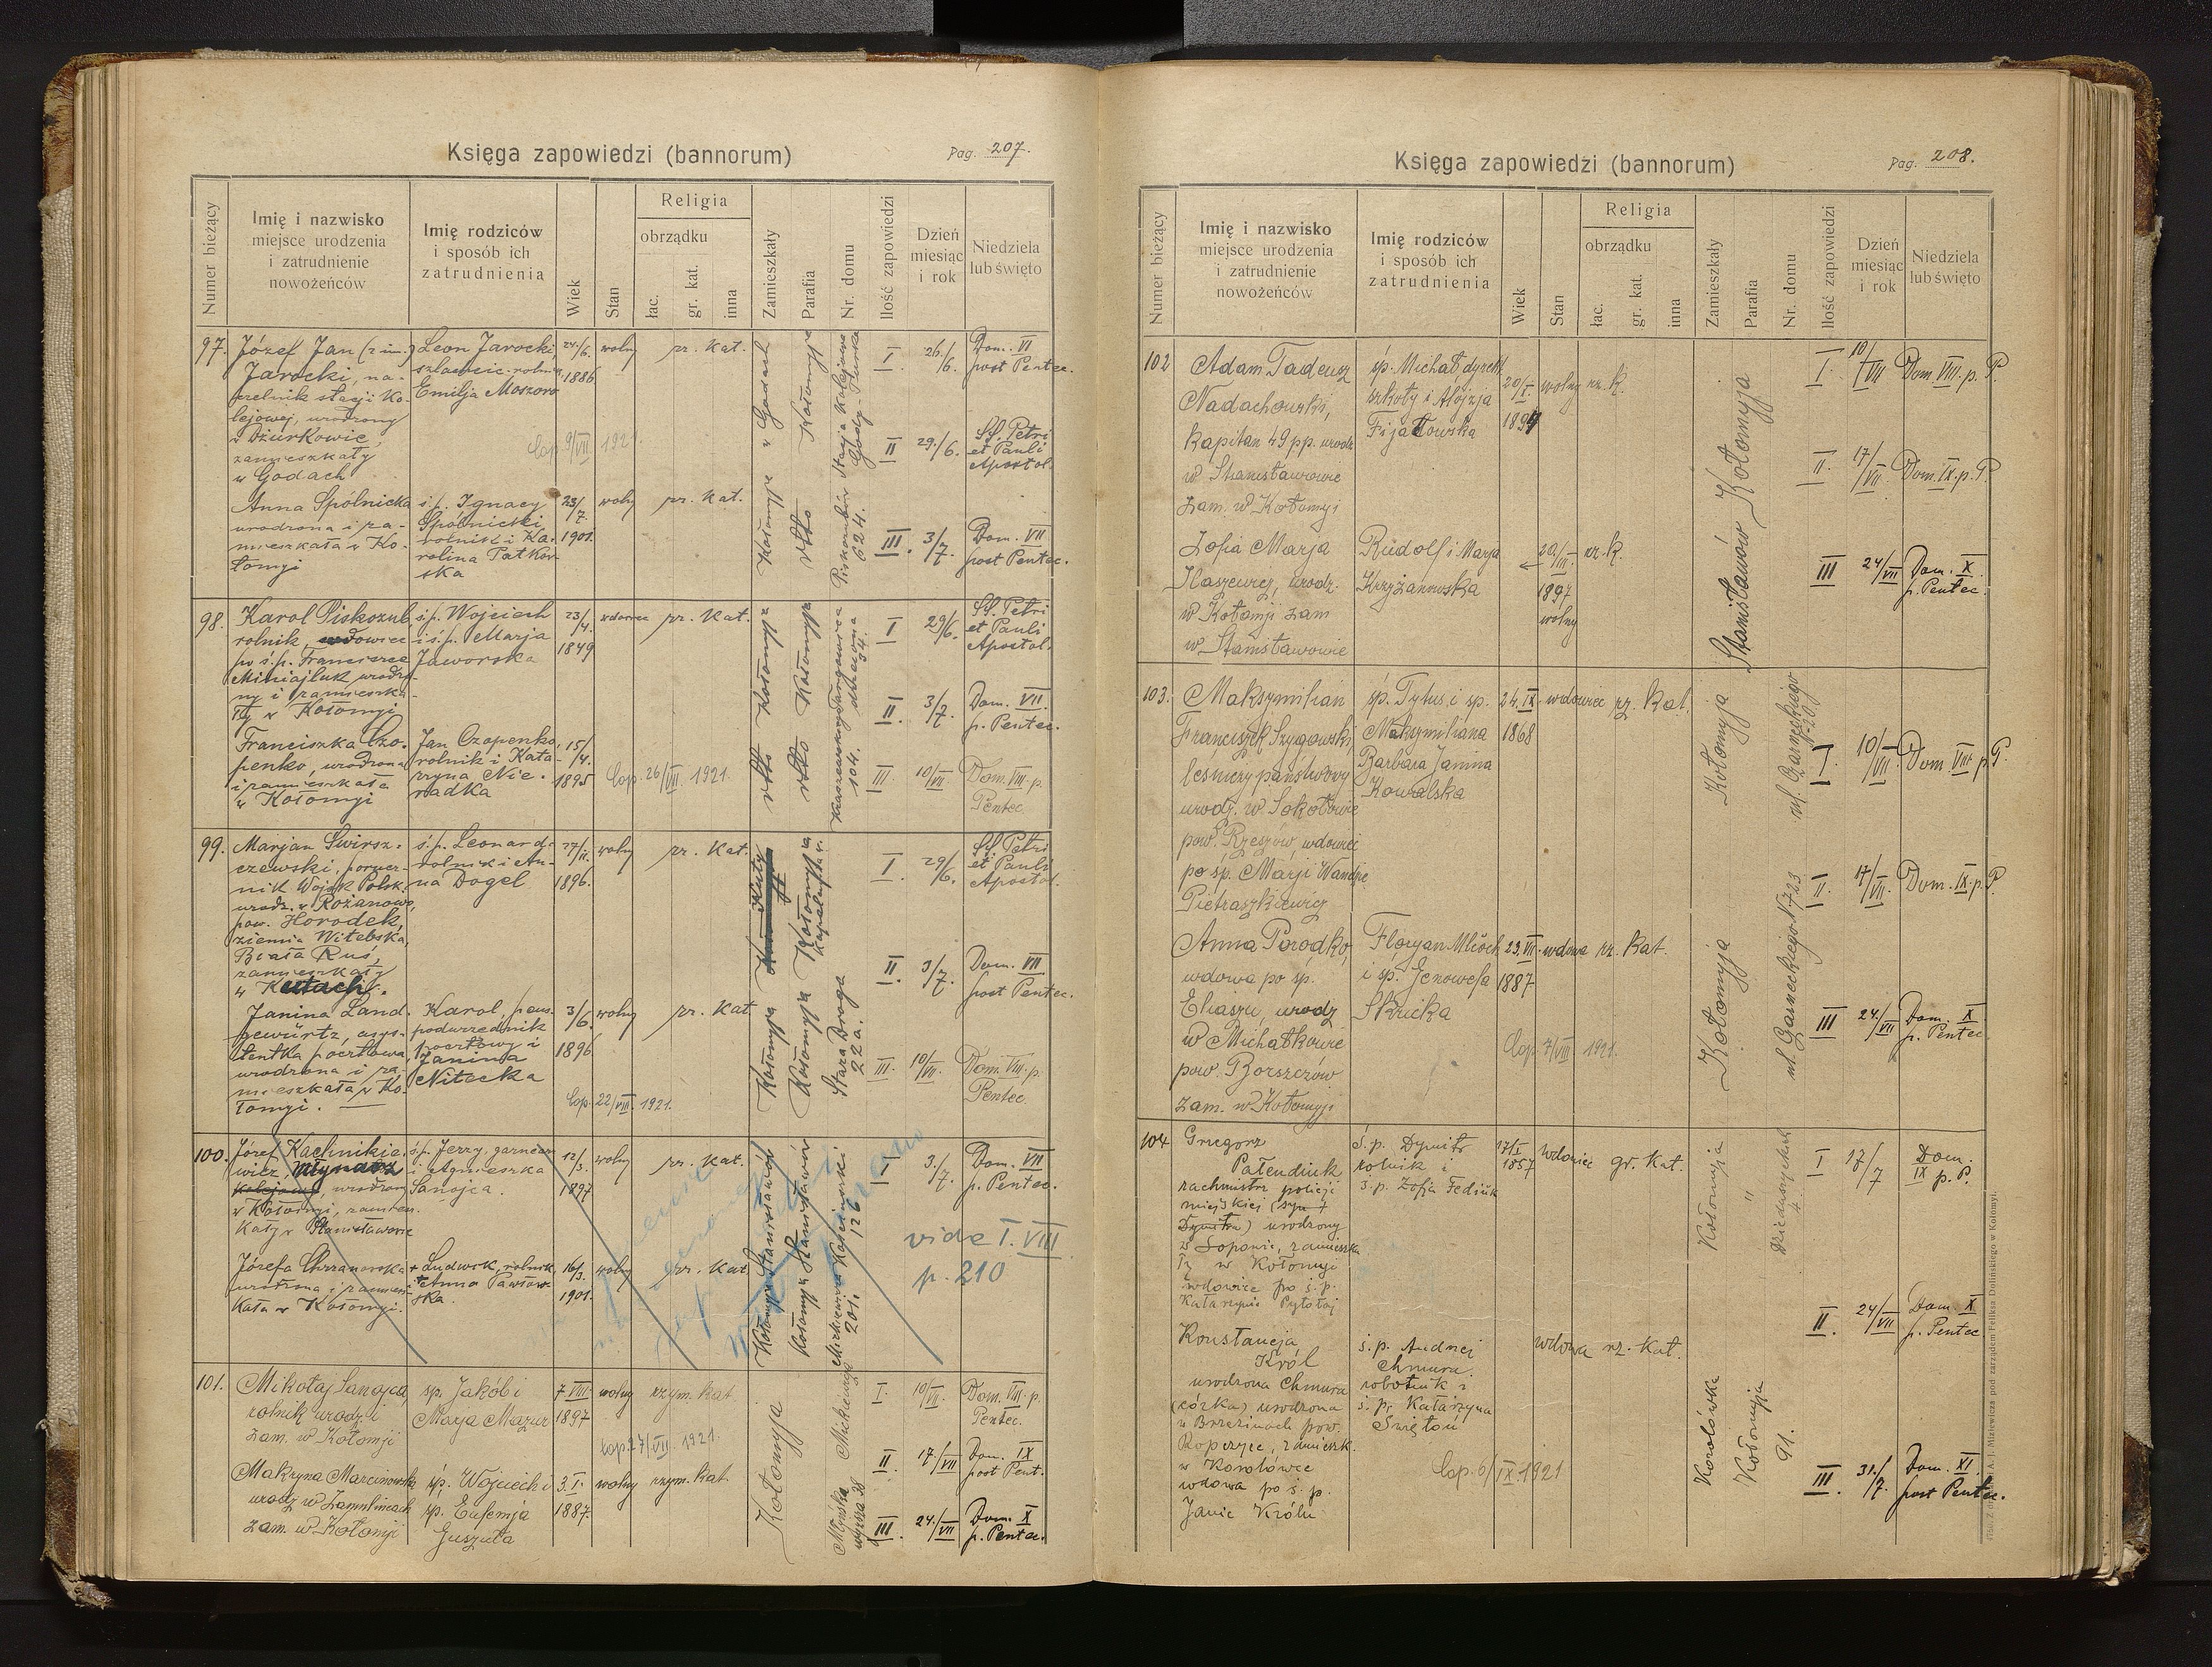 Księga zapowiedzi (bannorum)
Pag. 207.
Numer bieżący
Imię i nazwisko
miejsce urodzenia
i zatrudnienie
nowożeńców
Imię rodziców
i sposób ich
zatrudnienia
Wiek
Stan
Religia
obrządku
łac.
gr. kat.
inna
Zamieszkały
Parafia
Nr. domu
Ilość zapowiedzi
Dzień
miesiąc
i rok
Niedziela
lub święto
97.
Józef Jan (2 im.)
Jarocki, na-
czelnik stacji ko-
lejowej, urodzony
w Dżurkowie,
zamieszkały
w Godach
Leon Jarocki,
szlachcic rolnik
Emilja Moszoro
24/6.
1886
wolny
rz. kat.
cop. 9/VII 1921.
w Godach
Kołomyja
Stacja kolejowa
Gody-Turka
I
26./6.
Dom. VI
post Pentec.
II
29./6.
SS. Petri
et Pauli
Apostol.
Anna Spólnicka
urodzona i za-
mieszkała w Ko-
łomyi
ś.p. Ignacy
Spólnicki,
rolnik i Ka-
rolina Patkow-
ska
23/7.
1901.
wolny
rz. kat.
Kołomyja
dtto
Piskozubów
624.
III.
3/7.
Dom. VII
post Pentec.
98.
Karol Piskozub,
rolnik, wdowiec
po ś.p. Franciszce
Miniajluk urodzo-
ny i zamieszka-
ły w Kołomyi
ś.p. Wojciech
i ś.p. Marja
Jaworska
23/4.
1849
wdowiec
rz. kat.
Kołomyja
Kołomyja
34.
I
29/6.
SS. Petri
et Pauli
Apostol.
II.
3/7.
Dom. VII.
p. Pentec.
Franciszka Czo-
penko, urodzona
i zamieszkała
w Kołomyi
Jan Czopenko,
rolnik i Kata-
rzyna Nie-
radka
15/4.
1895
cop. 26/VII 1921.
dtto
dtto
104.
III.
10/VII.
Dom. VIII. p.
Pentec.
99.
Marjan Swirsz-
czewski, porucz-
nik Wojsk Polsk.
urodz. w Rożanowo,
pow. Horodek,
ziemia Witebska,
Biała Ruś,
zamieszkały
w Kutach.
ś.p. Leonard
rolnik i An-
na Dogel
27/II.
1896.
wolny
rz. kat.
Kuty
Kołomyja
I.
29/6.
SS. Petri
et Pauli
Apostol.
II
3/7.
Dom. VII
post Pentec.
Janina Land-
gewürtz, asys-
tentka pocztowa,
urodzona i za-
mieszkała w Ko-
łomyi.
Karol, pans.
podurzędnik
pocztowy i
Janina
Nitecka
3/6.
1896
wolny
rz. kat.
cop. 22/VIII. 1921.
Kołomyja
Kołomyja
Stara Droga
22 a.
III.
10/VII.
Dom. VIII. p.
Pentec.
100.
Józef Kachnikie-
wicz, młynarz
kolejowy, urodzony
w Kołomyi, zamiesz-
kały w Stanisławowie
ś.p. Jerzy, garncarz
i Agnieszka
Sanojca.
12/3.
1897
wolny
rz. kat.
Stanisławów
Stanisławów
126
I
3./7.
Dom. VII
p. Pentec.
vide I. VIII
p. 210
Józefa Chrzanowska
urodzona i zamiesz-
kała w Kołomyi.
+ Ludwik, rolnik,
+ Anna Pawłow-
ska.
16/3.
1901.
wolny
rz. kat.
Kołomyja
Kołomyja
Mickiewicza
201.
101.
Mikołaj Sanojca,
rolnik urodz. i
zam. w Kołomyji
śp. Jakób i
Marja Mazur
7 VIII.
1897
wolny
rzym. kat.
cop. 27/VII. 1921.
Kołomyja
Mickiewicza
I.
10/VII.
Dom. VIII. p.
Pentec.
II
17/VII
Dom. IX
post Pent.
Makryna Marcinowska
urodz. w Zamulincach
zam. w Kołomyji
śp. Wojciech i
śp. Eufemja
Guszuta
3. I.
1887.
wolny
rzym. kat.
Młyńska
III
24./VII
Dom. X
p. Pentec.
Księga zapowiedzi (bannorum)
Pag. 208.
Numer bieżący
Imię i nazwisko
miejsce urodzenia
i zatrudnienie
nowożeńców
Imię rodziców
i sposób ich
zatrudnienia
Wiek
Stan
Religia
obrządku
łac.
gr. kat.
inna
Zamieszkały
Parafia
Nr. domu
Ilość zapowiedzi
Dzień
miesiąc
i rok
Niedziela
lub święto
102
Adam Tadeusz
Nadachowski,
kapitan 49 pp. urodz.
w Stanisławowie
zam. w Kołomyi
śp. Michał dyrekt.
szkoły i Alojzja
Fijałowska
20/I.
1894
wolny
rz. k.
Kołomyja
I.
10/VII
Dom. VIII. p. P.
II.
17/VII.
Dom. IX. p. P.
Zofia Marja
Ilaszewicz, urodz.
w Kołomyi zam
w Stanisławowie
Rudolf i Marja
Krzyżanowska
20/III.
1897
wolny
rz. k.
Stanisławów
III
24/VII
Dom. X
p. Pentec.
103.
Maksymilian
Franciszek Szygowski,
leśniczy państwowy
urodz. w Sokołowie
pow. Rzeszów, wdowiec
po śp. Marji Wandzie
Pietraszkiewicz
śp. Tytus i śp.
Maksymiliana
Barbara Janina
Kowalska
24. IX.
1868
wdowiec
rz. kat.
Kołomyja
I.
10/VII.
Dom. VIII p. P.
II.
17/VII.
Dom. IX. p. P.
Anna Porodko,
wdowa po śp.
Eliaszu, urodz
w Michałkowie
pow. Borszczów
zam. w Kołomyji
Florjan Mlőoch
i śp. Genowefa
Skricka
23. VII.
1887
wdowa
rz. kat.
cop. 7/VIII 1921.
Kołomyja
III
24./VII
Dom. X
p. Pentec
104
Grzegorz
Pałendiuk
rachmistrz policji
miejskiej (syn +
Dymitra) urodzony
w Sopowie, zamieszka-
ły w Kołomyi
wdowiec po ś.p.
Katarzynie Pytołaj
Ś.p. Dymitr
rolnik i
ś.p. Zofja Fediuk
17/I
1857
wdowiec
gr. kat.
Kołomyja
"
Dzieduszyckich
4.
I
17/7
Dom.
IX p. P.
II.
24/VII
Dom. X
p. Pentec
Konstancja
Król
urodzona Chmura
(córka) urodzona
w Brzezinach pow.
Ropczyce, zamieszk.
w Korolówce
wdowa po ś. p.
Janie Królu
ś.p. Andrzej
Chmura
robotnik i
ś. p. Katarzyna
Świętoń
wdowa
rz. kat.
cop. 6/IX. 1921
Korolówka
Kołomyja
91.
III.
31./7.
Dom. XI
post Pentec.